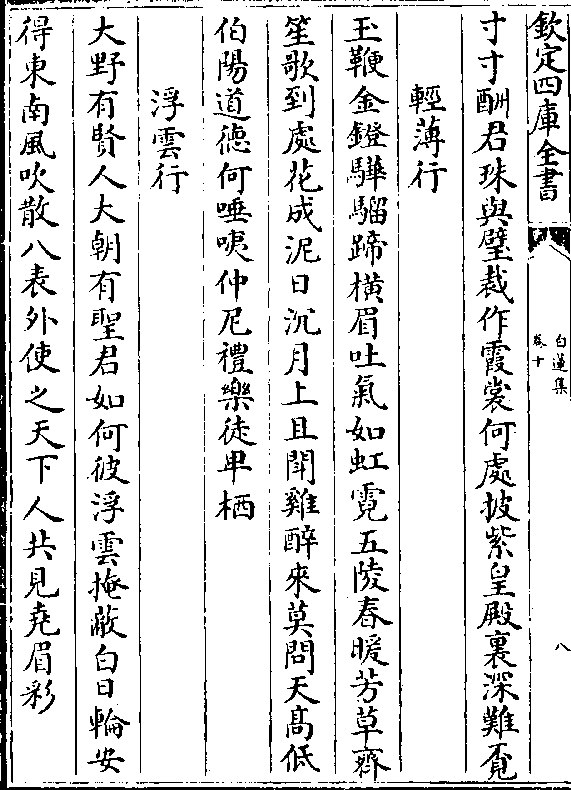 欽定四庫全書
白蓮集
卷十
八
寸寸酬君珠與璧裁作霞裳何處披紫皇殿裏深難覔
輕薄行
玉鞭金鐙驊騮蹄橫眉吐氣如虹霓五陵春暖芳草齊
笙歌到處花成泥日沉月上且閗雞醉來莫問天髙低
伯陽道徳何唾咦仲尼禮樂徒卑栖
浮雲行
大野有賢人大朝有聖君如何彼浮雲掩蔽白日輪安
得東南風吹散八表外使之天下人共見堯眉彩